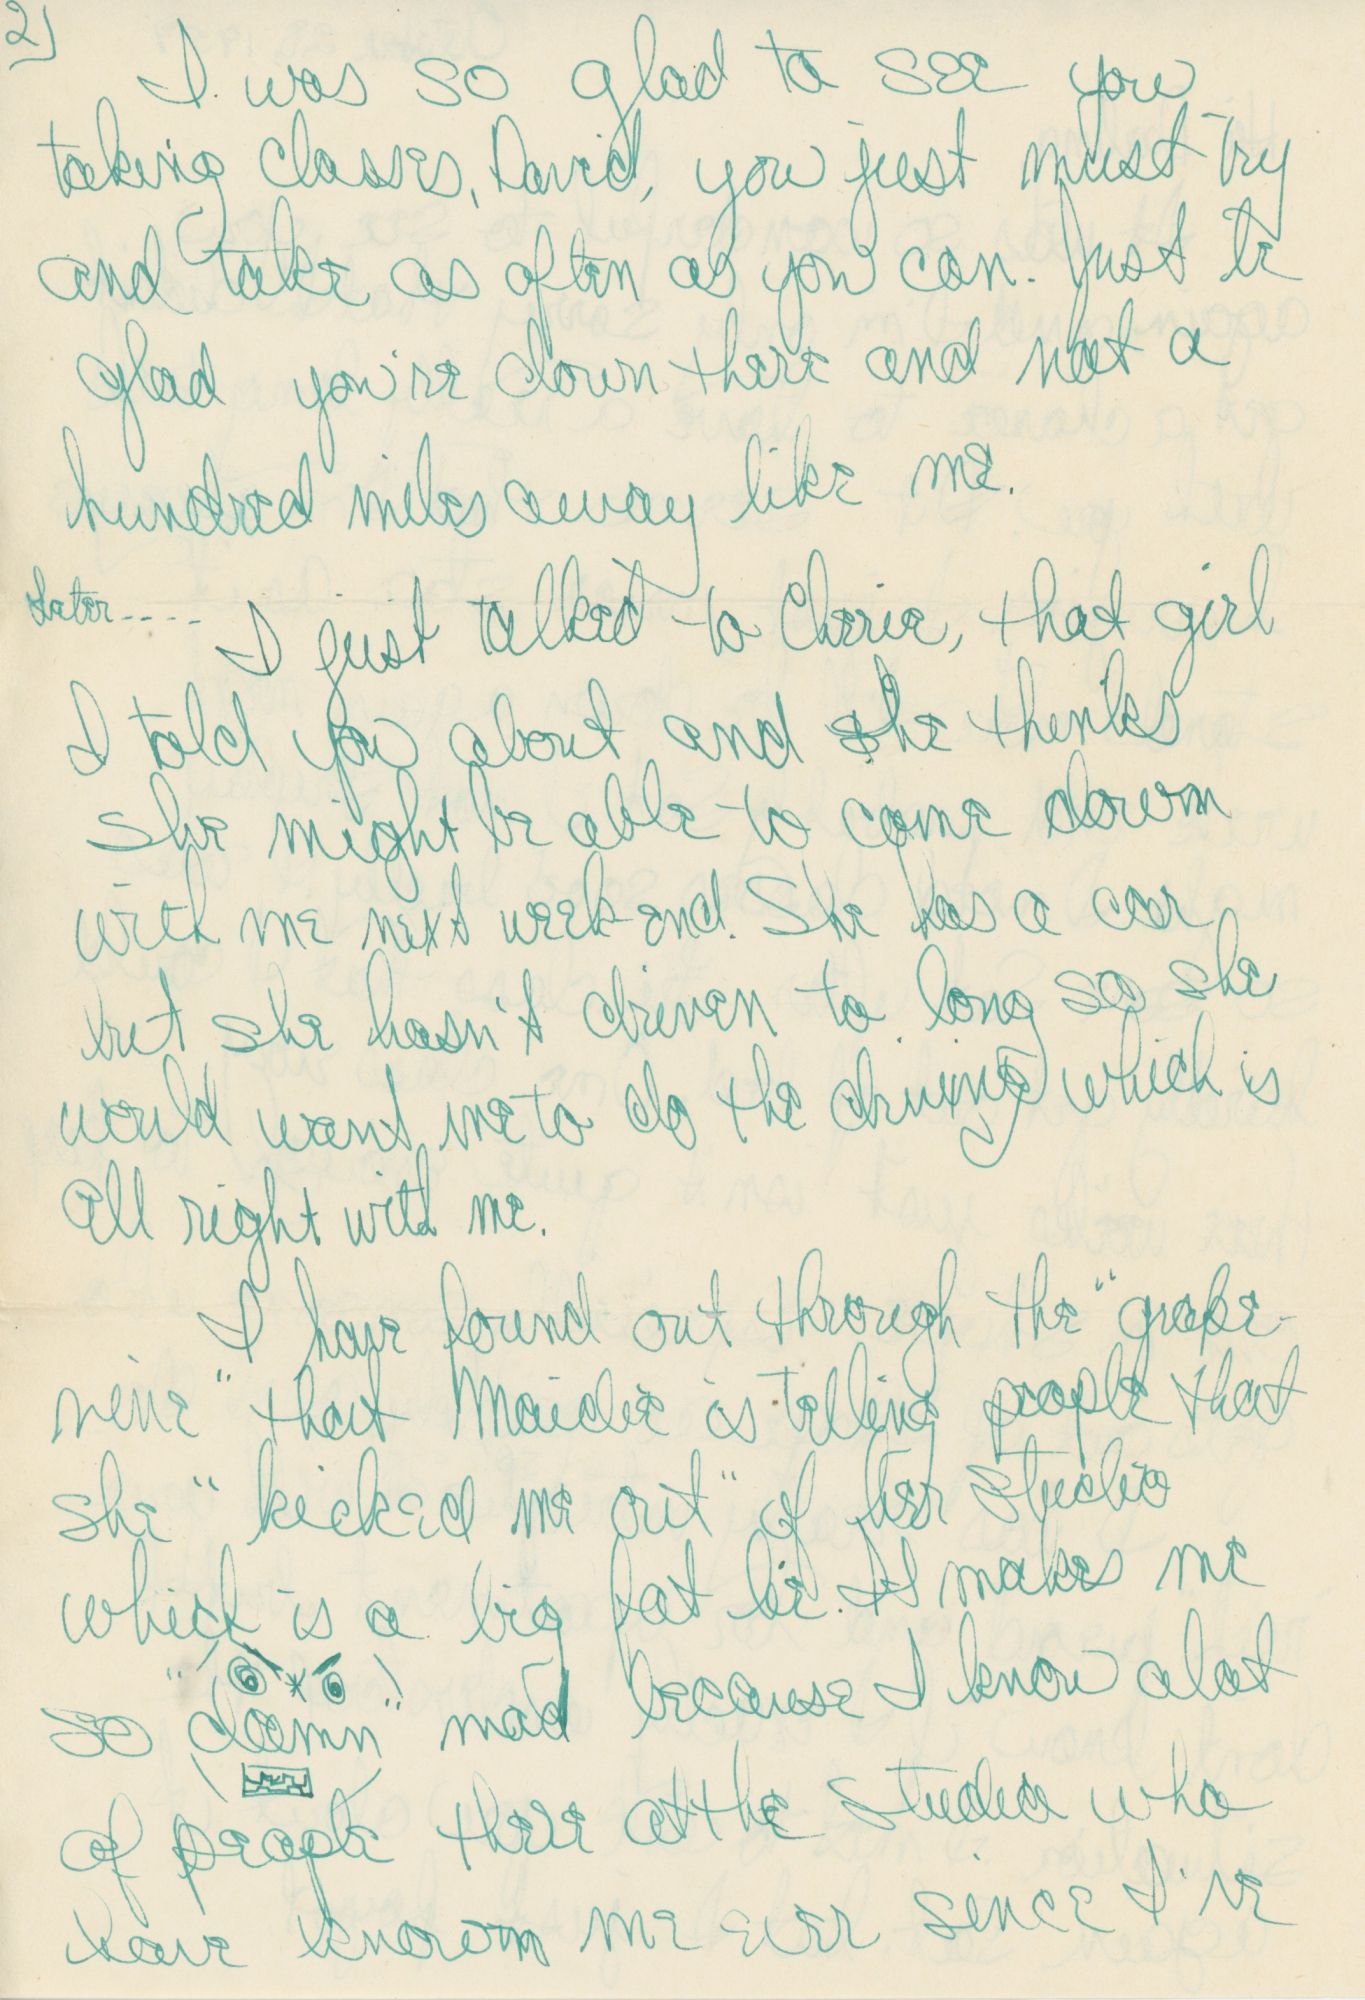 2)
I was so glad to see you
taking classes, David, you just must try
and take as often as you can. Just be
glad you're down there and not a
hundred miles away like me.
Later----
I just talked to Cherie, that girl
I told you about and she thinks
she might be able to come down
with me next week-end. She has a car
but she hasn't driven to long so she
would want me to do the driving which is
all right with me.
I have found out through the "grape-
vine" that Maidie is telling people that
she "kicked me out" of her studio
which is a big fat lie. It makes me
so "damn" mad because I know alot
of people there at the studio who
have known me ever since I've